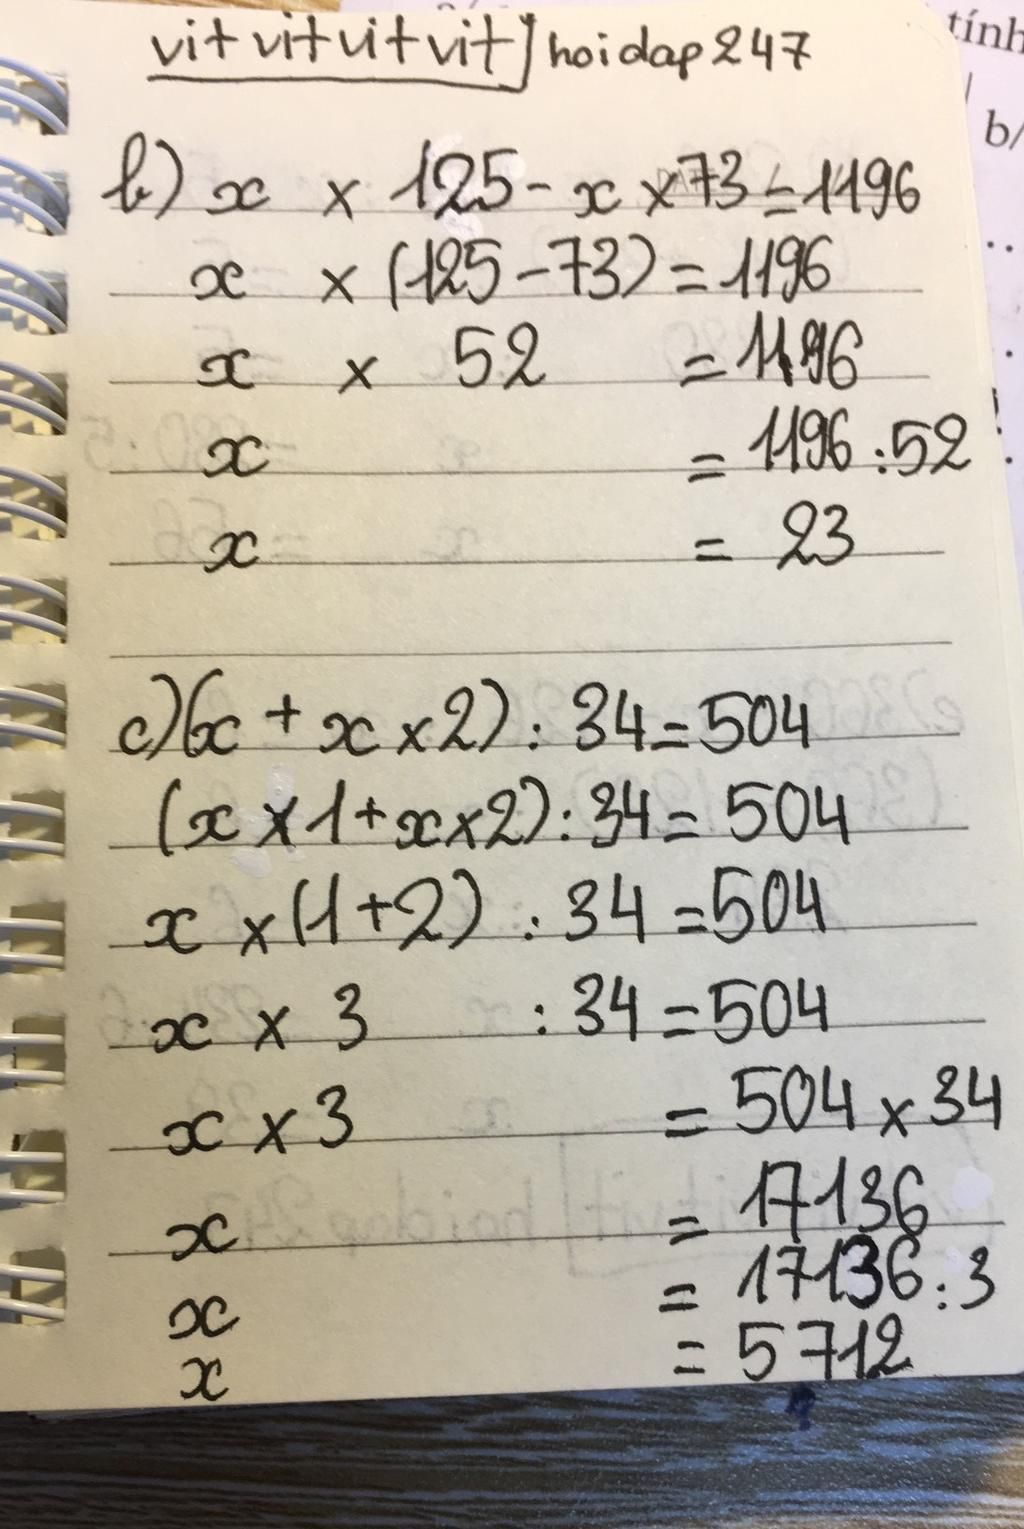 vitvitvitvit] hoidap247
tính
b/
b) x × 125 - x × 73 = 1196
x × (125 - 73) = 1196
x × 52 = 1196
x = 1196 : 52
x = 23
c) (x + x × 2) : 34 = 504
(x × 1 + x × 2) : 34 = 504
x × (1 + 2) : 34 = 504
x × 3 : 34 = 504
x × 3 = 504 × 34
x = 17136
x = 17136 : 3
x = 5712